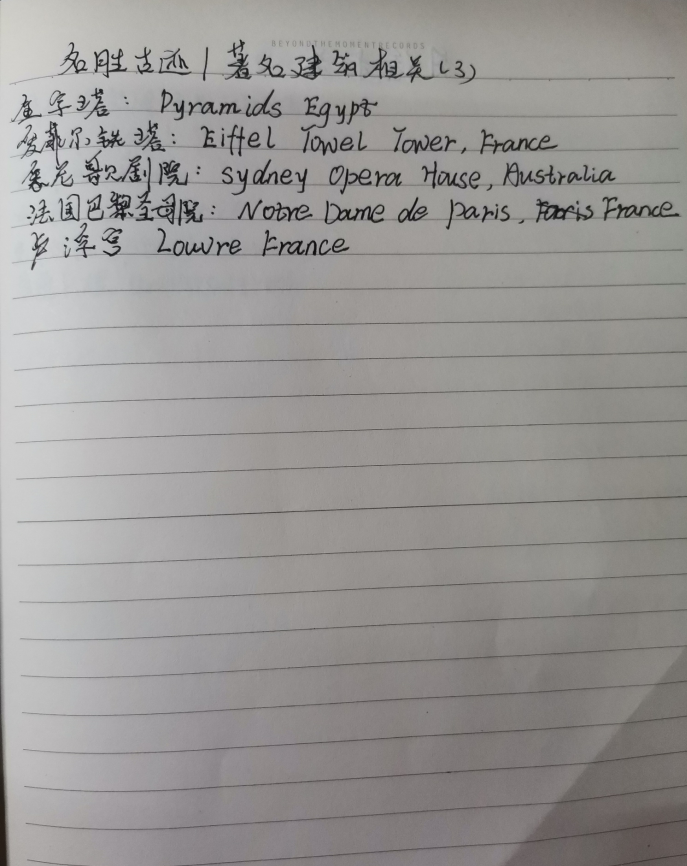 BEYONDTHEMOMENTRECORDS
名胜古迹/著名建筑相关(3)
金字塔: Pyramids Egypt
埃菲尔铁塔: Eiffel Towel Tower, France
悉尼歌剧院: Sydney Opera House, Australia
法国巴黎圣母院: Notre Dame de Paris, France
卢浮宫 Louvre France